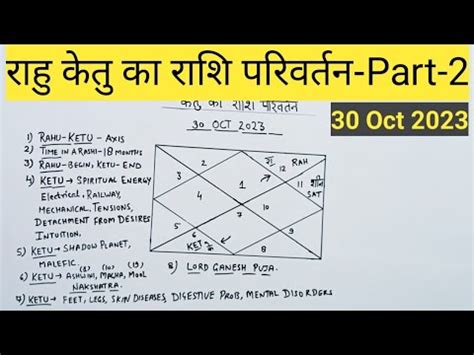 राहु केतु का राशि परिवर्तन-Part-2
केतु का राशि परिवर्तन
30 OCT 2023
30 Oct 2023
1) RAHU-KETU - AXIS
2) TIME IN A RASHI-18 MONTHS
3) RAHU-BEGIN, KETU-END
4) KETU → SPIRITUAL ENERGY
Electrical, RAILWAY,
MECHANICAL, TENSIONS,
DETACHMENT FROM DESIRES
INTUITION.
5) KETU → SHADOW PLANET,
MALEFIC.
6) KETU → ASHWINI, MAGHA, MOOL
(1) (10) (19)
NAKSHATRA.
7) KETU → FEET, LEGS, SKIN DISEASES, DIGESTIVE PROB, MENTAL DISORDERS
8) LORD GANESH PUJA.
2
रा
12 RAH
3
1
11 शनि
SAT
4
10
7
5
9
6
KET के
8